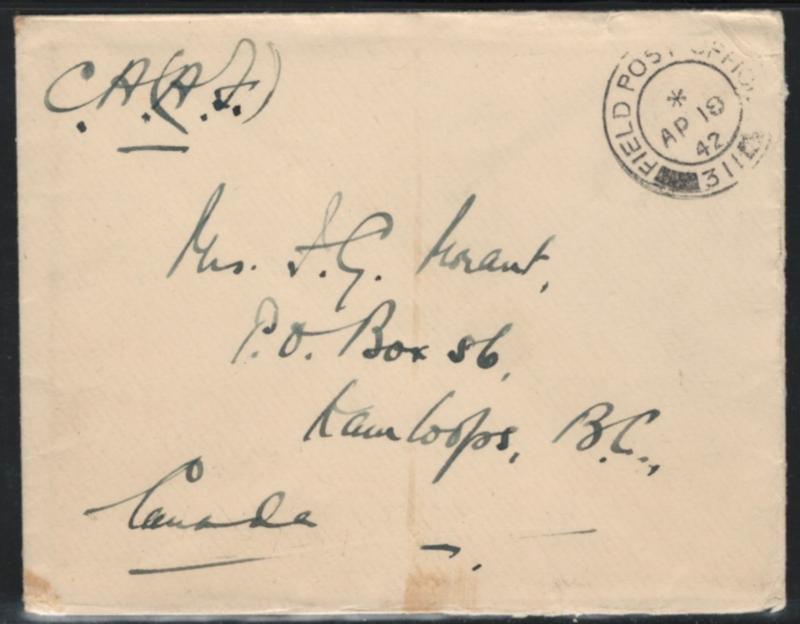 C.A.(A.F.)
FIELD POST OFFICE
*
AP 19
42
311
Mrs. F.G. Morant,
P.O. Box 86,
Kamloops, B.C.,
Canada